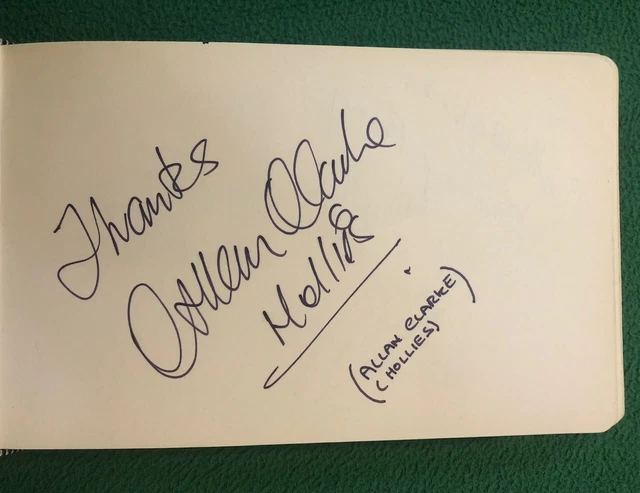 Thanks
Allan Clarke
Hollies
(ALLAN CLARKE)
(HOLLIES)